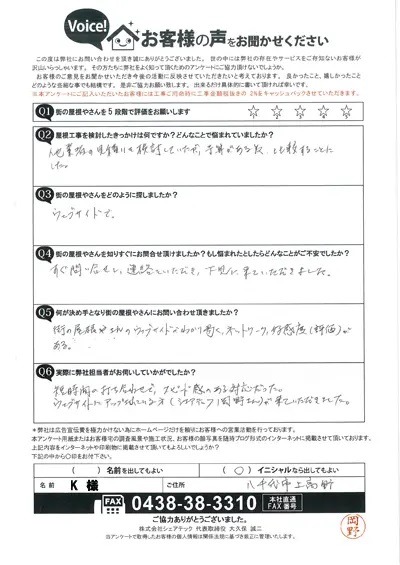 Voice!
お客様の声をお聞かせください
この度は弊社にお問い合わせを頂き誠にありがとうございました。 世の中には弊社の存在やサービスをご存知ないお客様が
沢山いらっしゃいます。 その方たちに弊社をよく知って頂くためのアンケートにご協力頂けないでしょうか。
お客様のご意見をお聞かせいただき今後の活動に反映させていただきたいと考えております。 良かったこと、嬉しかったこと
どのような些細な事でも結構です。 是非ご協力お願い致します。 出来るだけ具体的に書いて頂ければ幸いです。
※本アンケートにご記入いただいたお客様には工事ご契約時に工事金額税抜きの 2%をキャッシュバックさせていただきます。
Q1 街の屋根やさんを5段階で評価をお願いします ☆ ☆ ☆ ☆ ☆
Q2 屋根工事を検討したきっかけは何ですか?どんなことで悩まれていましたか?
他業者の見積りを検討していたが、
した。
Q3 街の屋根やさんをどのように探しましたか?
ウェブサイトで。
Q4 街の屋根やさんを知りすぐにお問合せ頂けましたか?もし悩まれたとしたらどんなことがご不安でしたか?
すぐ問い合せし、連絡をいただき、下見に来ていただきました。
Q5 何が決め手となり街の屋根やさんにお問い合わせ頂きましたか?
街の屋根やさんのウェブサイトがわかり易く、ネットワーク、好感度(評価)が
ある。
Q6 実際に弊社担当者がお伺いしていかがでしたか?
短時間の打ち合わせで、スピード感のある対応だった。
ウェブサイトにアップされている方(シェアテック岡野さん)が来ていただきました。
*弊社は広告宣伝費を極力かけない為にホームページだけを頼りにお客様への営業活動を行っております。
本アンケート用紙またはお客様宅の調査風景や施工状況、お客様の御写真を随時ブログ形式のインターネットに掲載させて頂いております。
上記内容をインターネットや印刷物に掲載させて頂いてもよろしいでしょうか?
下記の中から○印をお付下さい。
( )名前を出してもよい (○)イニシャルなら出してもよい
名前 K 様 ご住所 八千代市上高野
FAX 0438-38-3310 本社直通 FAX番号
ご協力ありがとうございました。
株式会社シェアテック 代表取締役 大久保 誠二
当アンケートで取得したお客様の個人情報は関係法規に基づき厳正に管理いたします。
岡野